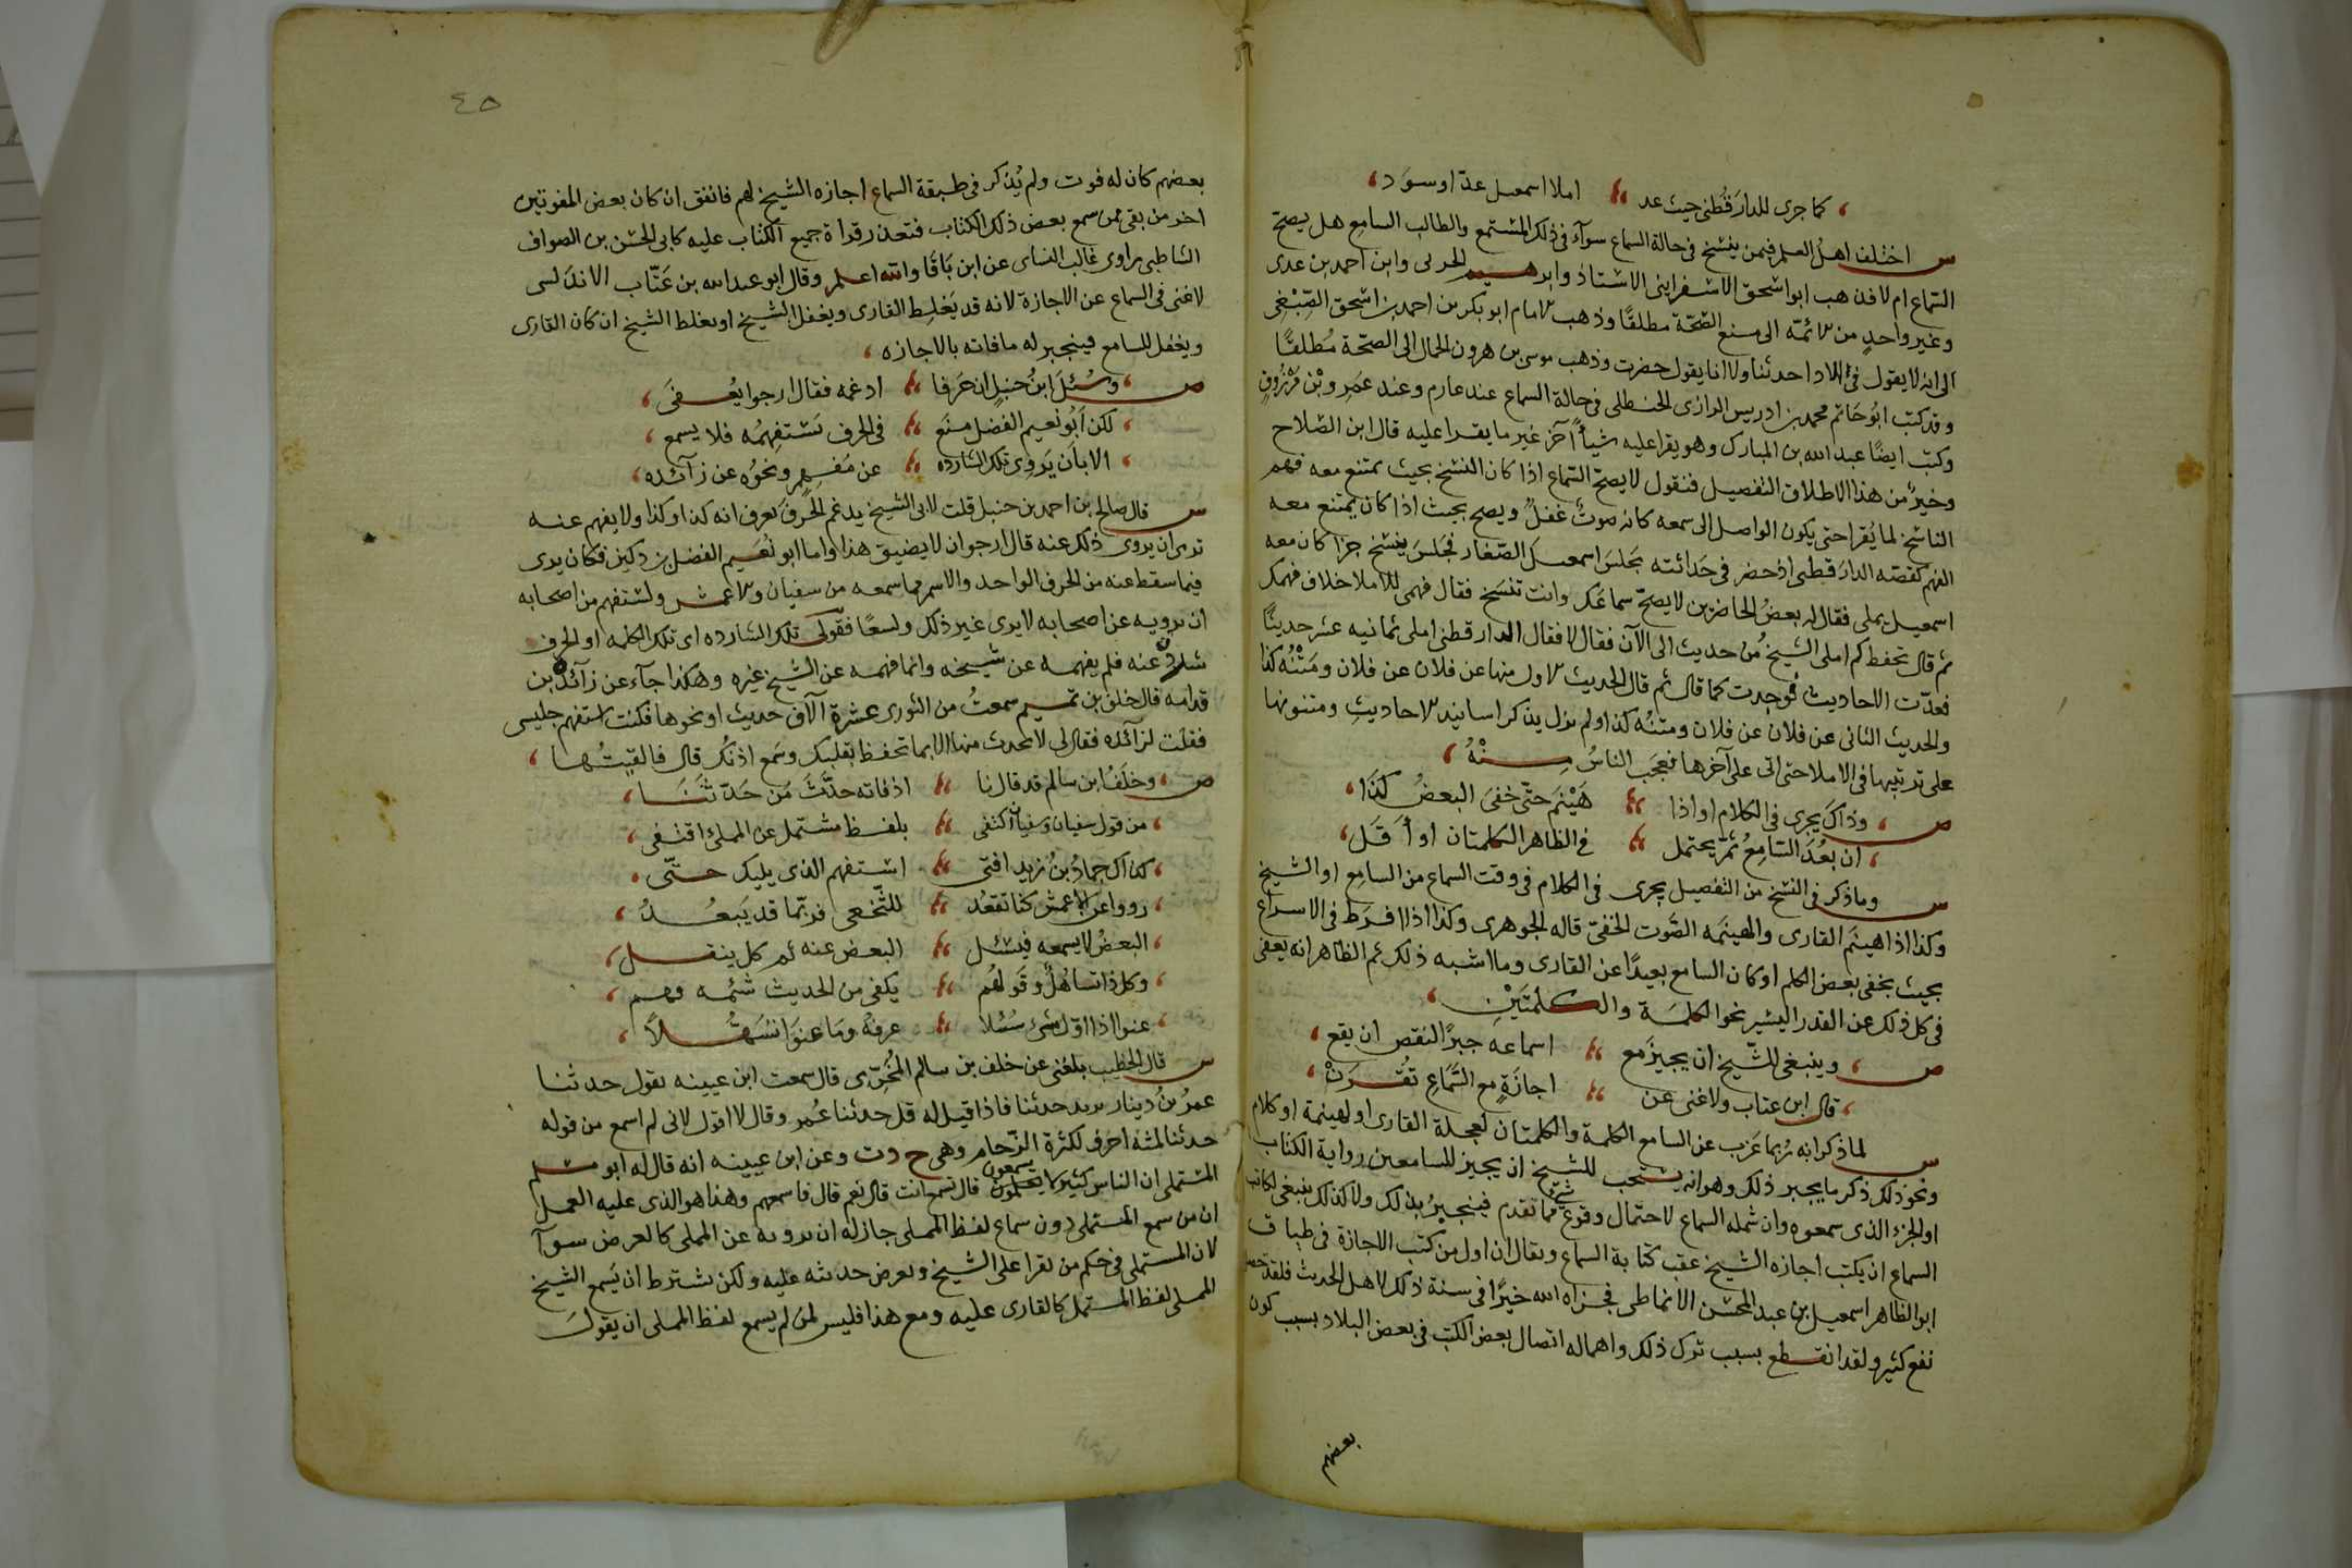 كما جرى للدارقُطنى حيث عد املا اسمعيل عدّا وسَرَد
س اختلف اهل العلم فيمن ينسخ فى حالة السماع سوآء فى ذلك المُسْتمع والطالب السامع هل يصحّ
السّماع ام لا فذهب ابو اسحق الاسفراينى الاستاذ وابرهيم الحربى وابن احمد بن عدى
وغير واحدٍ من الائمّة الى منع الصّحّة مطلقًا وذهب الامام ابو بكر بن احمد بن اسحق الصِّبْغى
الى انه لا يقول فى الاداء حدثنا ولا انا يقول حضرت وذهب موسى بن هرون الحمال الى الصّحّة مُطلقًا
وقد كتب ابوُ حَاتم محمد بن ادريس الرازى الحنظلى فى حالة السماع عند عارم وعند عَمرِو بْن مَرْزُوقٍ
وكتب ايضًا عبد الله بن المبارك وهو يقرا عليه شيأً آخرَ غير ما يقرا عليه قال ابن الصّلاح
وخيرٌ من هذا الاطلاق التفصيل فنقول لا يصحّ السّماع اذا كان النسْخ بحيث يمتنع معه فهم
الناسخ لما يُقرا حتى يكون الواصل الى سمعه كانه صوتٌ غُفلٌ ويصح بحيث اذا كان يمتنع معه
الفهم كقصّه الدارَقطنى اذ حضر فى حَداثته مجلسَ اسمعيل الصّفار فجلسَ ينسْخ جزا كان معه
اسمعيل يملى فقال له بعضُ الحاضرين لا يصحّ سماعَك وانت تنسَخ فقال فهمى للاملا خلاف فهمك
ثم قال تحفظ كم املى الشيخ من حديث الى الآن فقال لا فقال الدارقطنى املى ثمانيه عشر حديثًا
فعدّت الاحاديث فوجدت كما قال ثم قال الحديث الاول منها عن فلان عن فلان ومَتْنُه كذا
والحديث الثانى عن فلان عن فلان ومتنُه كذا ولم يزل يذكر اسانيد الاحاديثِ ومتنونها
على ترتيبها فى الاملا حتى اتى على آخرها فعجَب الناسُ مِنْهُ
ص وذاك يجرى فى الكلام او اذا هَيْنَم حتّى خفىَ البعضُ كَذا
ان بعُدَ السّامِعُ ثمّ يحتمل فى الظاهر الكلمتان او أَقَل
س وما ذكر فى النسخ من التفصيل يجرى فى الكلام فى وقت السماع من السامِع او الشيخ
وكذا اذا هينَم القارى والهينَمه الصَّوت الخفىّ قاله الجوهرى وكذا اذا افرَط فى الاسراع
بحيث يخفى بعض الكلم او كان السامع بعيدًا عن القارى وما اشبه ذلك ثم الظاهر انه يعفى
فى كل ذلك عن القدر اليسير نحو الكلمَة والكلمتَيْنِ
ص وينبغى للشّيخ ان يجيزَ مع اسماعه جبرًا لنقص ان يقع
قال ابن عتاب ولا غنى عن اجازَةٍ مع السَّمَاعِ تُقْرَنْ
س لما ذكر انه رُبما عَزب عن السامع الكلمة والكلمتان لعجلة القارى او لهينمة او كلام
ونحو ذلك ذكر ما يجبر ذلك وهو انه يستحب للشيخ ان يجيز للسامعين رواية الكتاب
او الجزء الذى سمعوه وان شمله السماع لاحتمال وقوع شئٍ مّما تقدم فينجبرُ بذلك وكذلك ينبغى لكاتب
السماع ان يكتب اجازه الشيخ عقب كتابة السماع ويقال ان اول من كتب الاجازة فى طباق
ابو الطاهر اسمعيل بن عبد المحسْن الانماطى فجزاه الله خيرًا فى سنة ذلك لاهل الحديث فلقد حصل
نفع كثير ولقد انقطع بسبب ترك ذلك واهماله اتصال بعض الكتب فى بعض البلاد بسبب كون
بعضهم
٤٥
بعضهم كان له فوت ولم يُذكر فى طبقة السماع اجازه الشيخ لهم فاتفق ان كان بعض المفوتين
اخر من بقى ممن سمع بعض ذلك الكتاب فتعذر قراة جميع الكتاب عليه كابى الحسْن بن الصواف
الشاطبى راوى غالب النساى عن ابن بَاقا والله اعلم وقال ابو عبد الله بن عَتّاب الاندلسى
لا غنى فى السماع عن الاجازة لانه قد يَغلِط القارى ويغفل الشيخ او يغلط الشيخ ان كان القارى
ويغفل السامع فينجبر له ما فاته بالاجازه
ص وسُئلَ ابنُ حَنبلٍ ان حَرفا ادغمه فقال ارجوا يُعفىَ
لكن اَبُو نُعيم الفضل منَع فى الحرف تَسْتفهِمُه فلا يسمع
الا بان يَروِى تلك الشارده عن مُفهِمٍ ونحوُه عن زآئده
س قال صالح بن احمد بن حنبل قلت لابى الشيخ يدغم الحرفَ يُعرف انه كذا وكذا ولا يفهم عنه
ترى ان يروى ذلك عنه قال ارجو ان لا يضيق هذا واما ابو نُعَيم الفضل بن دكين فكان يرى
فيما سقط عنه من الحرف الواحد والاسم مما سمعه من سفيان والاعمش واستفهم من اصحابه
ان يرويه عن اصحابه لا يرى غير ذلك واسعًا فقولى تلك الشارده اى تلك الكلمه او الحرف
شرد عنه فلم يفهمه عن شيخه وانما فهمه عن الشيخ غيره وهكذا جآء عن زآئدة بن
قدامه قال خلف بن تميم سمعتُ من الثورى عشرة آلاف حديث او نحوها فكنت استفهم جليسى
فقلت لزآئده فقال لى لا تحدث منها الا بما تحفظ بقلبك وسَمع اذنُك قال فالقيتُها
ص وخلَفُ ابن سالم قد قال نا اذ فاته حدَّثَ مِن حَدّثنَا
من قول سفيان وسفيانُ اكتفى بلفظ مستمل عن المملى اقتفى
كذاك حمادُ بنُ زيد افتى استفهم الذى يليك حتّى
رووا عن الاعمش كنا نقعُد للنّخعى فربّما قد يَبعُدُ
البعضُ لا يسمعه فيسئل البعض عنه ثم كل ينقل
وكل ذا تسَاهُلٌ وقَولهُم يكفى من الحديث شمُّه فهم
عنوا اذا اوّل شئ سُئلا عرفهُ ومَا عنَوا تسَهُّلاً
س قال الخطيب بلغنى عن خلف بن سالم المُخرّمى قال سمعت ابن عيينه يقول حدثنا
عمرُ بنُ دينار يريد حدثنا فاذا قيل له قل حدثنا عُمر وقال لا اقول لانى لم اسمع من قوله
حدثنا ثلثه احرف لكثرة الزّحام وهى ح د ث وعن ابن عيينه انه قال له ابو مسلم
المسْتملى ان الناس كثير لا يسمعون قال تسمع انت قال نعم قال فاسمعهم وهذا هو الذى عليه العمل
ان من سمع المستملى دون سماع لفظ المملى جاز له ان يرويه عن المملى كالعرض سوآ
لان المستملى فى حكم من يقرا على الشيخ ويعرض حديثه عليه ولكن يشترط ان يَسمع الشيخ
المملى لفظ المستملى كالقارى عليه ومع هذا فليس لمن لم يسمع لفظ المملى ان يقولَ